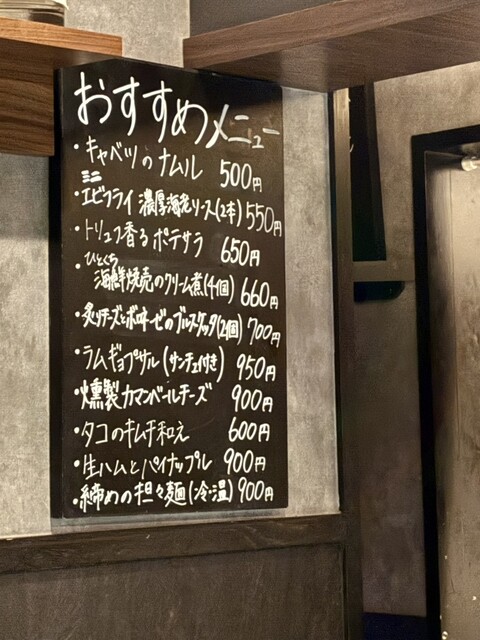 おすすめメニュー
・キャベツのナムル 500円
・ミニエビフライ 濃厚海老ソース(2本) 550円
・トリュフ香るポテサラ 650円
・ひとくち海鮮焼売のクリーム煮(4個) 660円
・炙りチーズとボロネーゼのブルスケッタ(2個) 700円
・ラムギョプサル(サンチュ付き) 950円
・燻製カマンベールチーズ 900円
・タコのキムチ和え 600円
・生ハムとパイナップル 900円
・締めの担々麺(冷・温) 900円